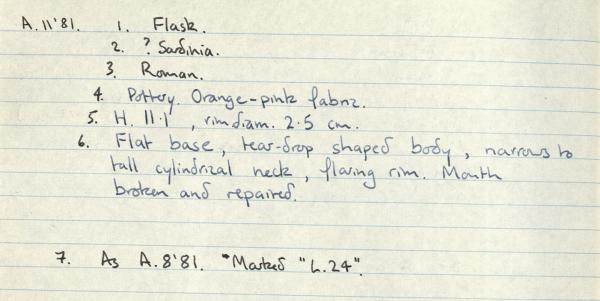 A.11'81. 1. Flask.
2. ? Sardinia.
3. Roman.
4. Pottery. Orange-pink fabric.
5. H. 11.1, rim diam. 2.5 cm.
6. Flat base, tear-drop shaped body, narrows to
tall cylindrical neck, flaring rim. Mouth
broken and repaired.
7. As A.8'81. "Marked "L.24".